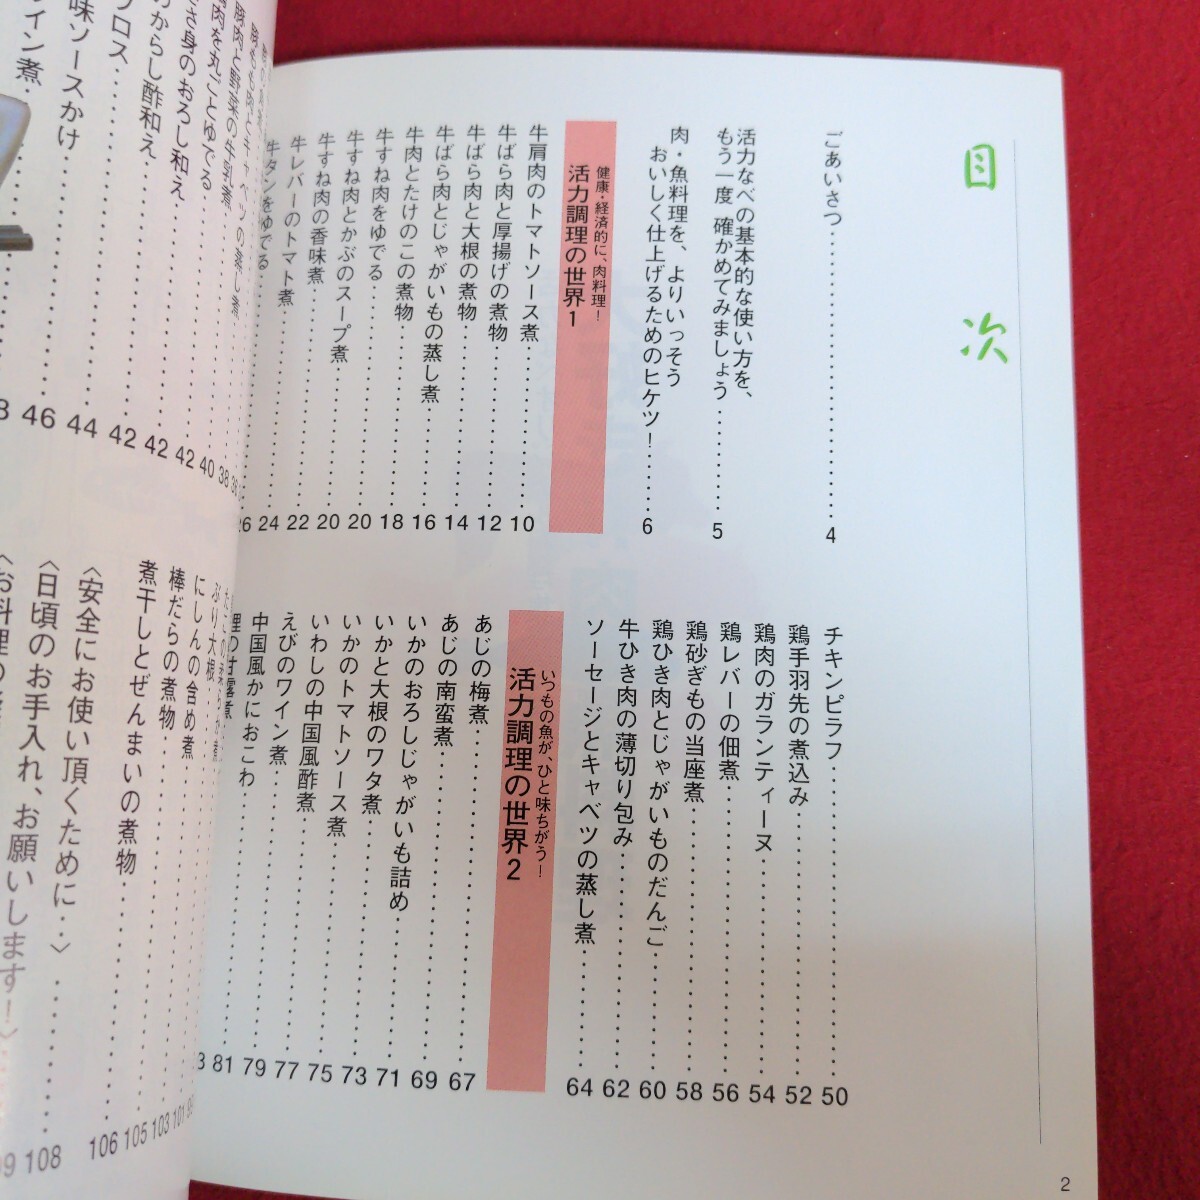 目次
ごあいさつ……4
活力なべの基本的な使い方を、
もう一度 確かめてみましょう……5
肉・魚料理を、よりいっそう
おいしく仕上げるためのヒケツ！……6
健康・経済的に、肉料理！
活力調理の世界1
牛肩肉のトマトソース煮……10
牛ばら肉と厚揚げの煮物……12
牛ばら肉と大根の煮物……14
牛ばら肉とじゃがいもの蒸し煮……16
牛肉とたけのこの煮物……18
牛すね肉をゆでる……20
牛すね肉とかぶのスープ煮……20
牛すね肉の香味煮……22
牛レバーのトマト煮……24
牛タンをゆでる……26
チキンピラフ……50
鶏手羽先の煮込み……52
鶏肉のガランティーヌ……54
鶏レバーの佃煮……56
鶏砂ぎもの当座煮……58
鶏ひき肉とじゃがいものだんご……60
牛ひき肉の薄切り包み……62
ソーセージとキャベツの蒸し煮……64
いつもの魚が、ひと味ちがう！
活力調理の世界2
あじの梅煮……67
あじの南蛮煮……69
いかのおろしじゃがいも詰め……71
いかと大根のワタ煮……73
いかのトマトソース煮……75
いわしの中国風酢煮……77
えびのワイン煮……79
中国風かにおこわ……81
2
豚肉と野菜の牛乳煮……38
肉を丸ごとゆでる……40
さき身のおろし和え……42
からし酢和え……42
ブロス……42
味ソースかけ……44
イン煮……46
ぶり大根……
にしんの含め煮……101
棒だらの煮物……103
煮干しとぜんまいの煮物……105
〈安全にお使い頂くために‥〉……106
〈日頃のお手入れ、お願いします！〉……108